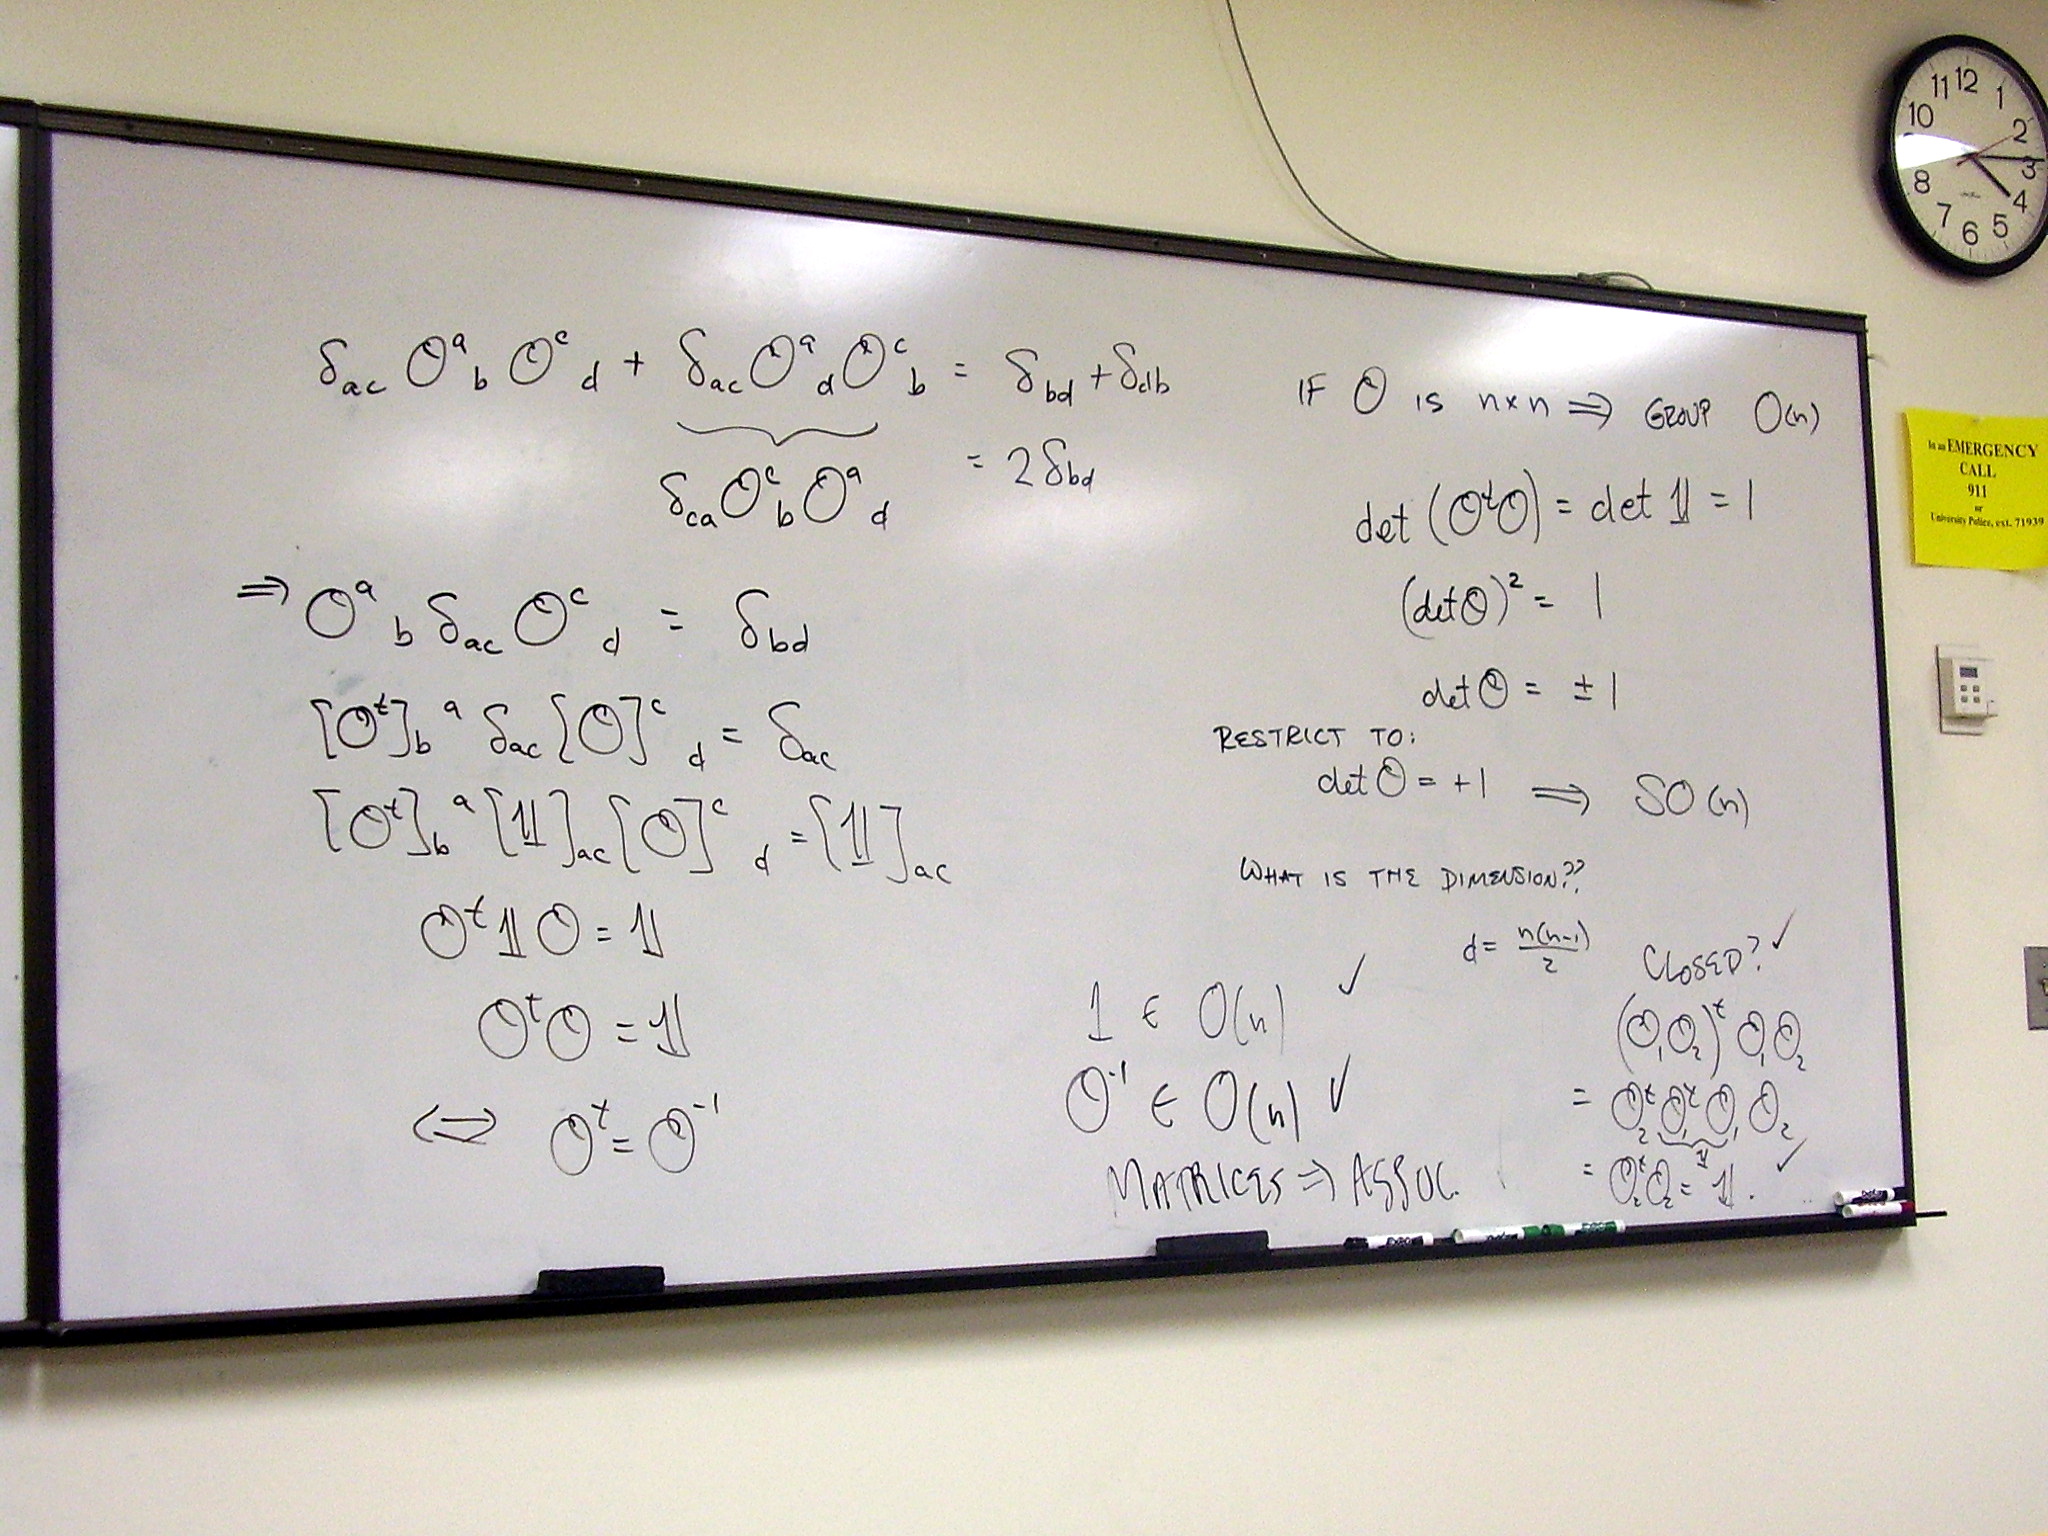 δ_ac O^a_b O^c_d + δ_ac O^a_d O^c_b = δ_bd + δ_db
δ_ca O^c_b O^a_d
= 2δ_bd
⇒ O^a_b δ_ac O^c_d = δ_bd
[O^t]_b^a δ_ac [O]^c_d = δ_ac
[O^t]_b^a [𝟙]_ac [O]^c_d = [𝟙]_ac
O^t 𝟙 O = 𝟙
O^t O = 𝟙
⇔ O^t = O^-1
IF O IS n×n ⇒ GROUP O(n)
det (O^t O) = det 𝟙 = 1
(det O)^2 = 1
det O = ±1
RESTRICT TO:
det O = +1 ⇒ SO(n)
WHAT IS THE DIMENSION??
d = n(n-1)/2
1 ∈ O(n) ✓
O^-1 ∈ O(n) ✓
MATRICES ⇒ ASSOC.
CLOSED? ✓
(O_1 O_2)^t O_1 O_2
= O_2^t O_1^t O_1 O_2
𝟙
= O_2^t O_2 = 𝟙. ✓
11 12 1
10 2
3
8 4
7 6 5
In an EMERGENCY
CALL
911
or
University Police, ext. 71939
EXPO